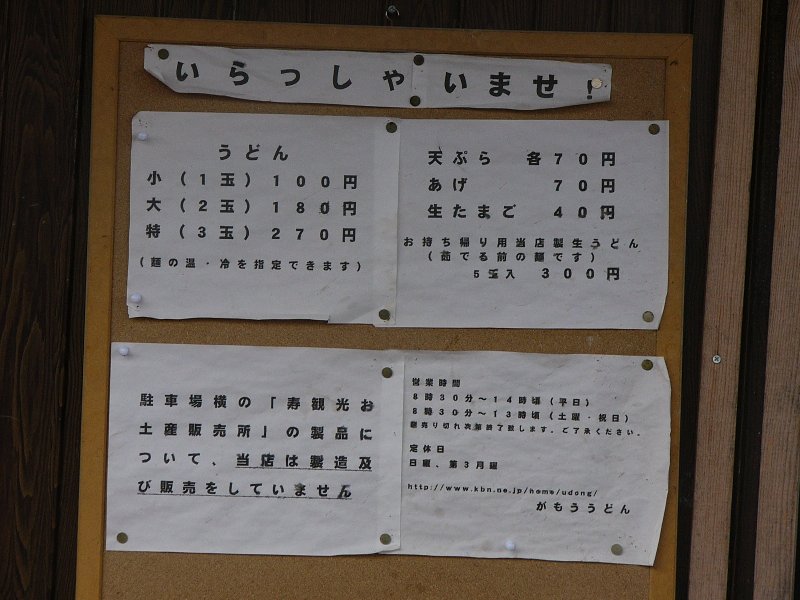 いらっしゃいませ!
うどん
小(1玉)100円
大(2玉)180円
特(3玉)270円
(麺の温・冷を指定できます)
天ぷら 各70円
あげ 70円
生たまご 40円
お持ち帰り用当店製生うどん
(茹でる前の麺です)
5玉入 300円
駐車場横の「寿観光お
土産販売所」の製品に
ついて、当店は製造及
び販売をしていません
営業時間
8時30分~14時頃(平日)
8時30分~13時頃(土曜・祝日)
麺売り切れ次第終了致します。ご了承ください。
定休日
日曜、第3月曜
http://www.kbn.ne.jp/home/udong/
がもううどん